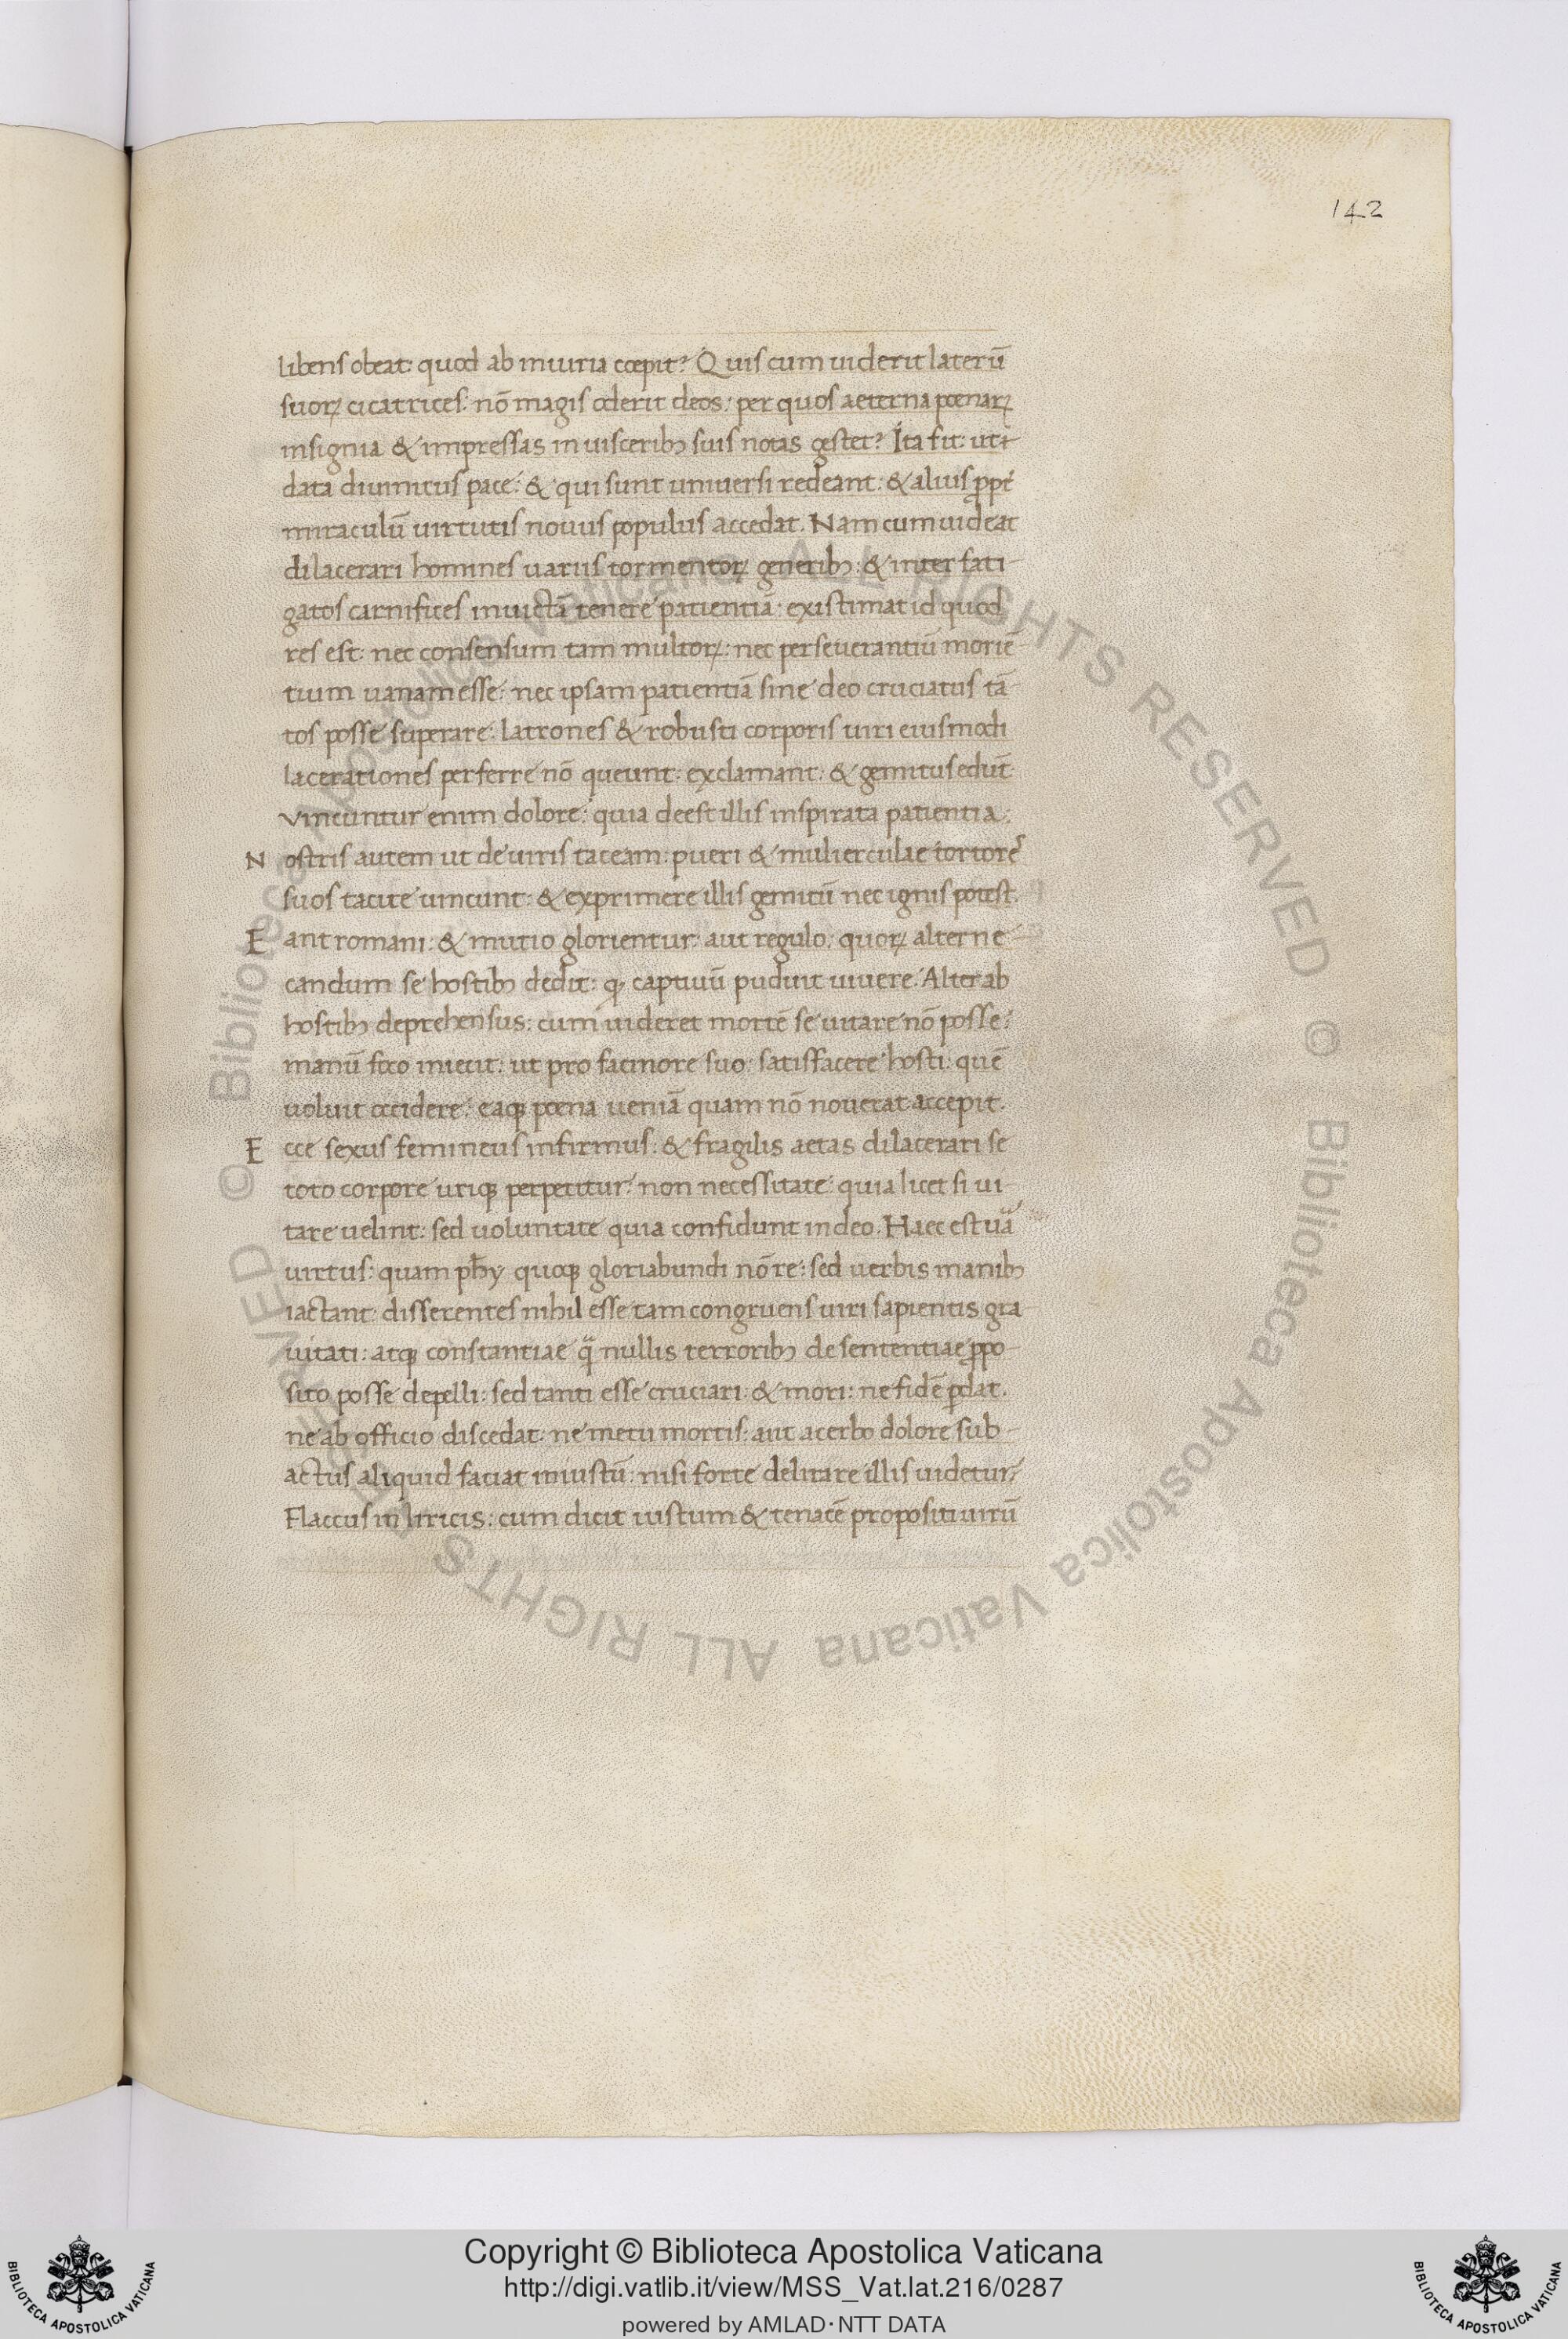 142
libens obeat: quod ab iniuria cœpit? Quis cum uiderit laterū
suoꝝ cicatrices: nō magis oderit deos: per quos aeterna pœnaꝝ
insignia & impressas in uisceribꝫ suis notas gestet? Ita fit: ut
data diuinitus pace: & qui sunt uniuersi redeant: & alius ꝓpt̄
miraculū uirtutis nouus populus accedat. Nam cum uideat
dilacerari homines uariis tormentoꝝ generibꝫ: & inter fati-
gatos carnifices inuictā tenere patientiā: existimat id quod
res est: nec consensum tam multoꝝ: nec perseuerantiū moriē
tium uanam esse: nec ipsam patientiā sine deo cruciatus tā
tos posse superare. Latrones & robusti corporis uiri eiusmodi
lacerationes perferre nō queunt: exclamant: & gemitus edūt:
Vincuntur enim dolore: quia deest illis inspirata patientia:
Nostris autem ut de uiris taceam: pueri & mulierculae tortore͛
suos tacite uincunt: & exprimere illis gemitū nec ignis potest.
Eant romani: & mutio glorientur: aut regulo: quoꝝ alter ne-
candum se hostibꝫ dedit: ꝙ captiuū puduit uiuere. Alter ab
hostibꝫ deprehensus: cum uideret mortē se uitare nō posse:
manū foco iniecit: ut pro facinore suo: satisfacere hosti: quē
uoluit occidere: eaqꝫ pœna ueniā quam nō nouerat accepit.
Ecce sexus femineus infirmus: & fragilis aetas dilacerari se
toto corpore utiqꝫ perpetitur: non necessitate: quia licet si ui-
tare uelint: sed uoluntate quia confidunt in deo. Haec est uā
uirtus: quam phȳ quoqꝫ gloriabundi nō re: sed uerbis manibꝫ
iactant: disserentes nihil esse tam congruens uiri sapientis gra
uitati: atqꝫ constantiae qᷓ nullis terroribꝫ de sententiae ꝓpo-
sito posse depelli: sed tanti esse cruciari: & mori: ne fidē ꝑdat.
ne ab officio discedat: ne metu mortis: aut acerbo dolore sub-
actus aliquid faciat iniustū: nisi forte delirare illis uidetur
Flaccus in liricis: cum dicit iustum & tenacē propositi uirū
© Biblioteca Apostolica Vaticana ALL RIGHTS RESERVED © Biblioteca Apostolica Vaticana ALL RIGHTS RESERVED
Copyright © Biblioteca Apostolica Vaticana
http://digi.vatlib.it/view/MSS_Vat.lat.216/0287
powered by AMLAD·NTT DATA
BIBLIOTECA APOSTOLICA VATICANA
BIBLIOTECA APOSTOLICA VATICANA